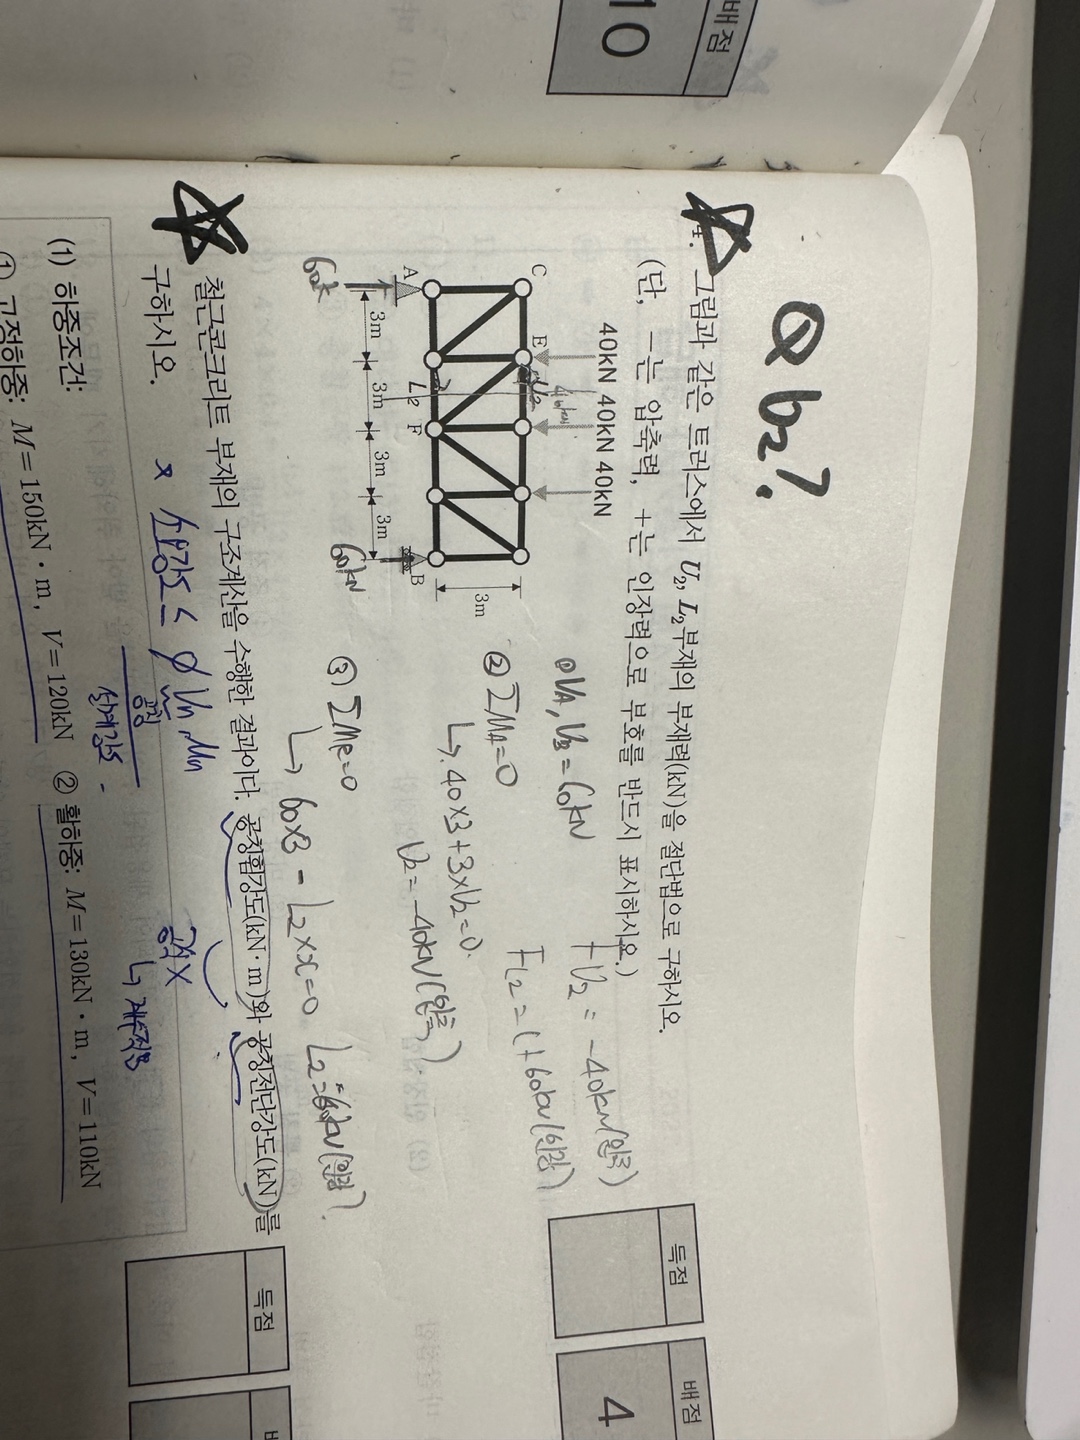 배점
10
Q b₂?
4. 그림과 같은 트러스에서 U₂, L₂부재의 부재력(kN)을 절단법으로 구하시오.
(단, −는 압축력, +는 인장력으로 부호를 반드시 표시하시오.)
득점
배점
4
40kN 40kN 40kN
40kN
C
E
U₂
A
L₂
F
B
3m
3m
3m
3m
3m
60k
60kN
① VA, VB = 60kN
② ΣMA=0
↳ 40×3+3×U₂=0.
U₂=−40kN(압축)
③ ΣME=0
↳ 60×3 − L₂××=0
L₂=60kN(인장).
FU₂ = −40kN(압축)
FL₂ = (+60kN(인장)
철근콘크리트 부재의 구조계산을 수행한 결과이다. 공칭휨강도(kN·m)와 공칭전단강도(kN)를
구하시오.
득점
* 소요강도 ≤ ϕ Vn, Mn
공칭
설계강도.
공식X
(1) 하중조건:
① 고정하중: M=150kN·m, V=120kN ② 활하중: M=130kN·m, V=110kN